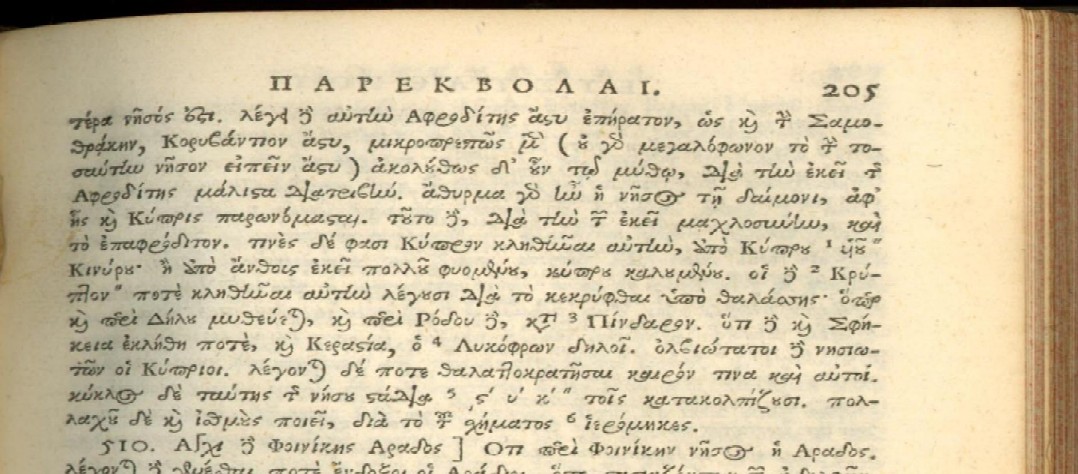 ΠΑΡΕΚΒΟΛΑΙ. 205
τέρα νῆσός ἐστι. λέγει δὲ αὐτὴν Αφροδίτης ἄςυ ἐπήρατον, ὡς καὶ τὴν Σαμο-
θράκην, Κορυβάντιον ἄςυ, μικροπρεπῶς μὲν (οὐ γὰρ μεγαλόφωνον τὸ τὴν το-
σαύτην νῆσον εἰπεῖν ἄςυ) ἀκολούθως δ' οὖν τῷ μύθῳ, διὰ τὴν ἐκεῖ τῆς
Αφροδίτης μάλιςα διατριβήν. ἄθυρμα γὰρ ἦν ἡ νῆσος τῇ δαίμονι, ἀφ'
ἧς καὶ Κύπρις παρωνόμασται. τοῦτο δὲ, διὰ τὴν τῶν ἐκεῖ μαχλοσύνην, καὶ
τὸ ἐπαφρόδιτον. τινὲς δέ φασι Κύπρον κληθῆναι αὐτὴν, ἀπὸ Κύπρου ¹ υἱοῦ "
Κινύρου· ἢ ἀπὸ ἄνθους ἐκεῖ πολλοῦ φυομένου, κύπρου καλουμένου. οἱ δὲ ² Κρύ-
πτον" ποτὲ κληθῆναι αὐτὴν λέγουσι διὰ τὸ κεκρύφθαι ὑπὸ θαλάσσης· ὅπερ
καὶ περὶ Δήλου μυθεύεται, καὶ περὶ Ρόδου δὲ, κατὰ ³ Πίνδαρον. ὅτι δὲ καὶ Σφή-
κεια ἐκλήθη ποτὲ, καὶ Κεραςία, ὁ ⁴ Λυκόφρων δηλοῖ. ὀλβιώτατοι δὲ νησιω-
τῶν οἱ Κύπριοι. λέγονται δέ ποτε θαλαττοκρατῆσαι καιρόν τινα καὶ αὐτοί.
κύκλος δὲ ταύτης τῆς νήσου στάδια ⁵ ͵γ υ´ κ´ " τοῖς κατακολπίζουσι. πολ-
λαχοῦ δὲ καὶ ἰσθμοὺς ποιεῖ, διὰ τὸ τοῦ σχήματος ⁶ ἑτερόμηκες.
510. Αγχι δὲ Φοινίκης Αραδος] Οτι περὶ Φοινίκην νῆσος ἡ Αραδος.
λέγονται δὲ